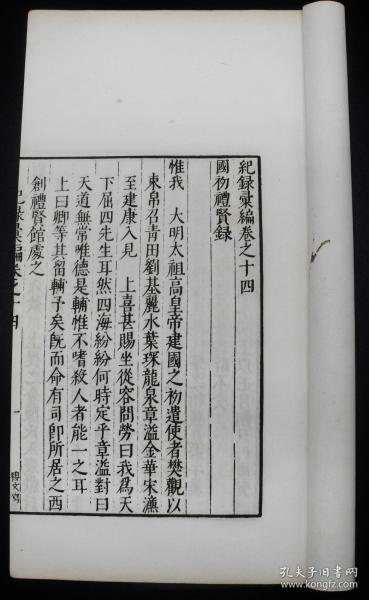 紀錄彙編卷之十四
國初禮賢錄
惟我　大明太祖高皇帝建國之初遣使者樊觀以
束帛召青田劉基麗水葉琛龍泉章溢金華宋濂
至建康入見　上喜甚賜坐從容問勞曰我為天
下屈四先生耳然四海紛紛何時定乎章溢對曰
天道無常惟德是輔惟不嗜殺人者能一之耳
上曰卿等其留輔予矣既而命有司即所居之西
創禮賢館處之
紀錄彙編卷之十四
一
孔夫子旧书网